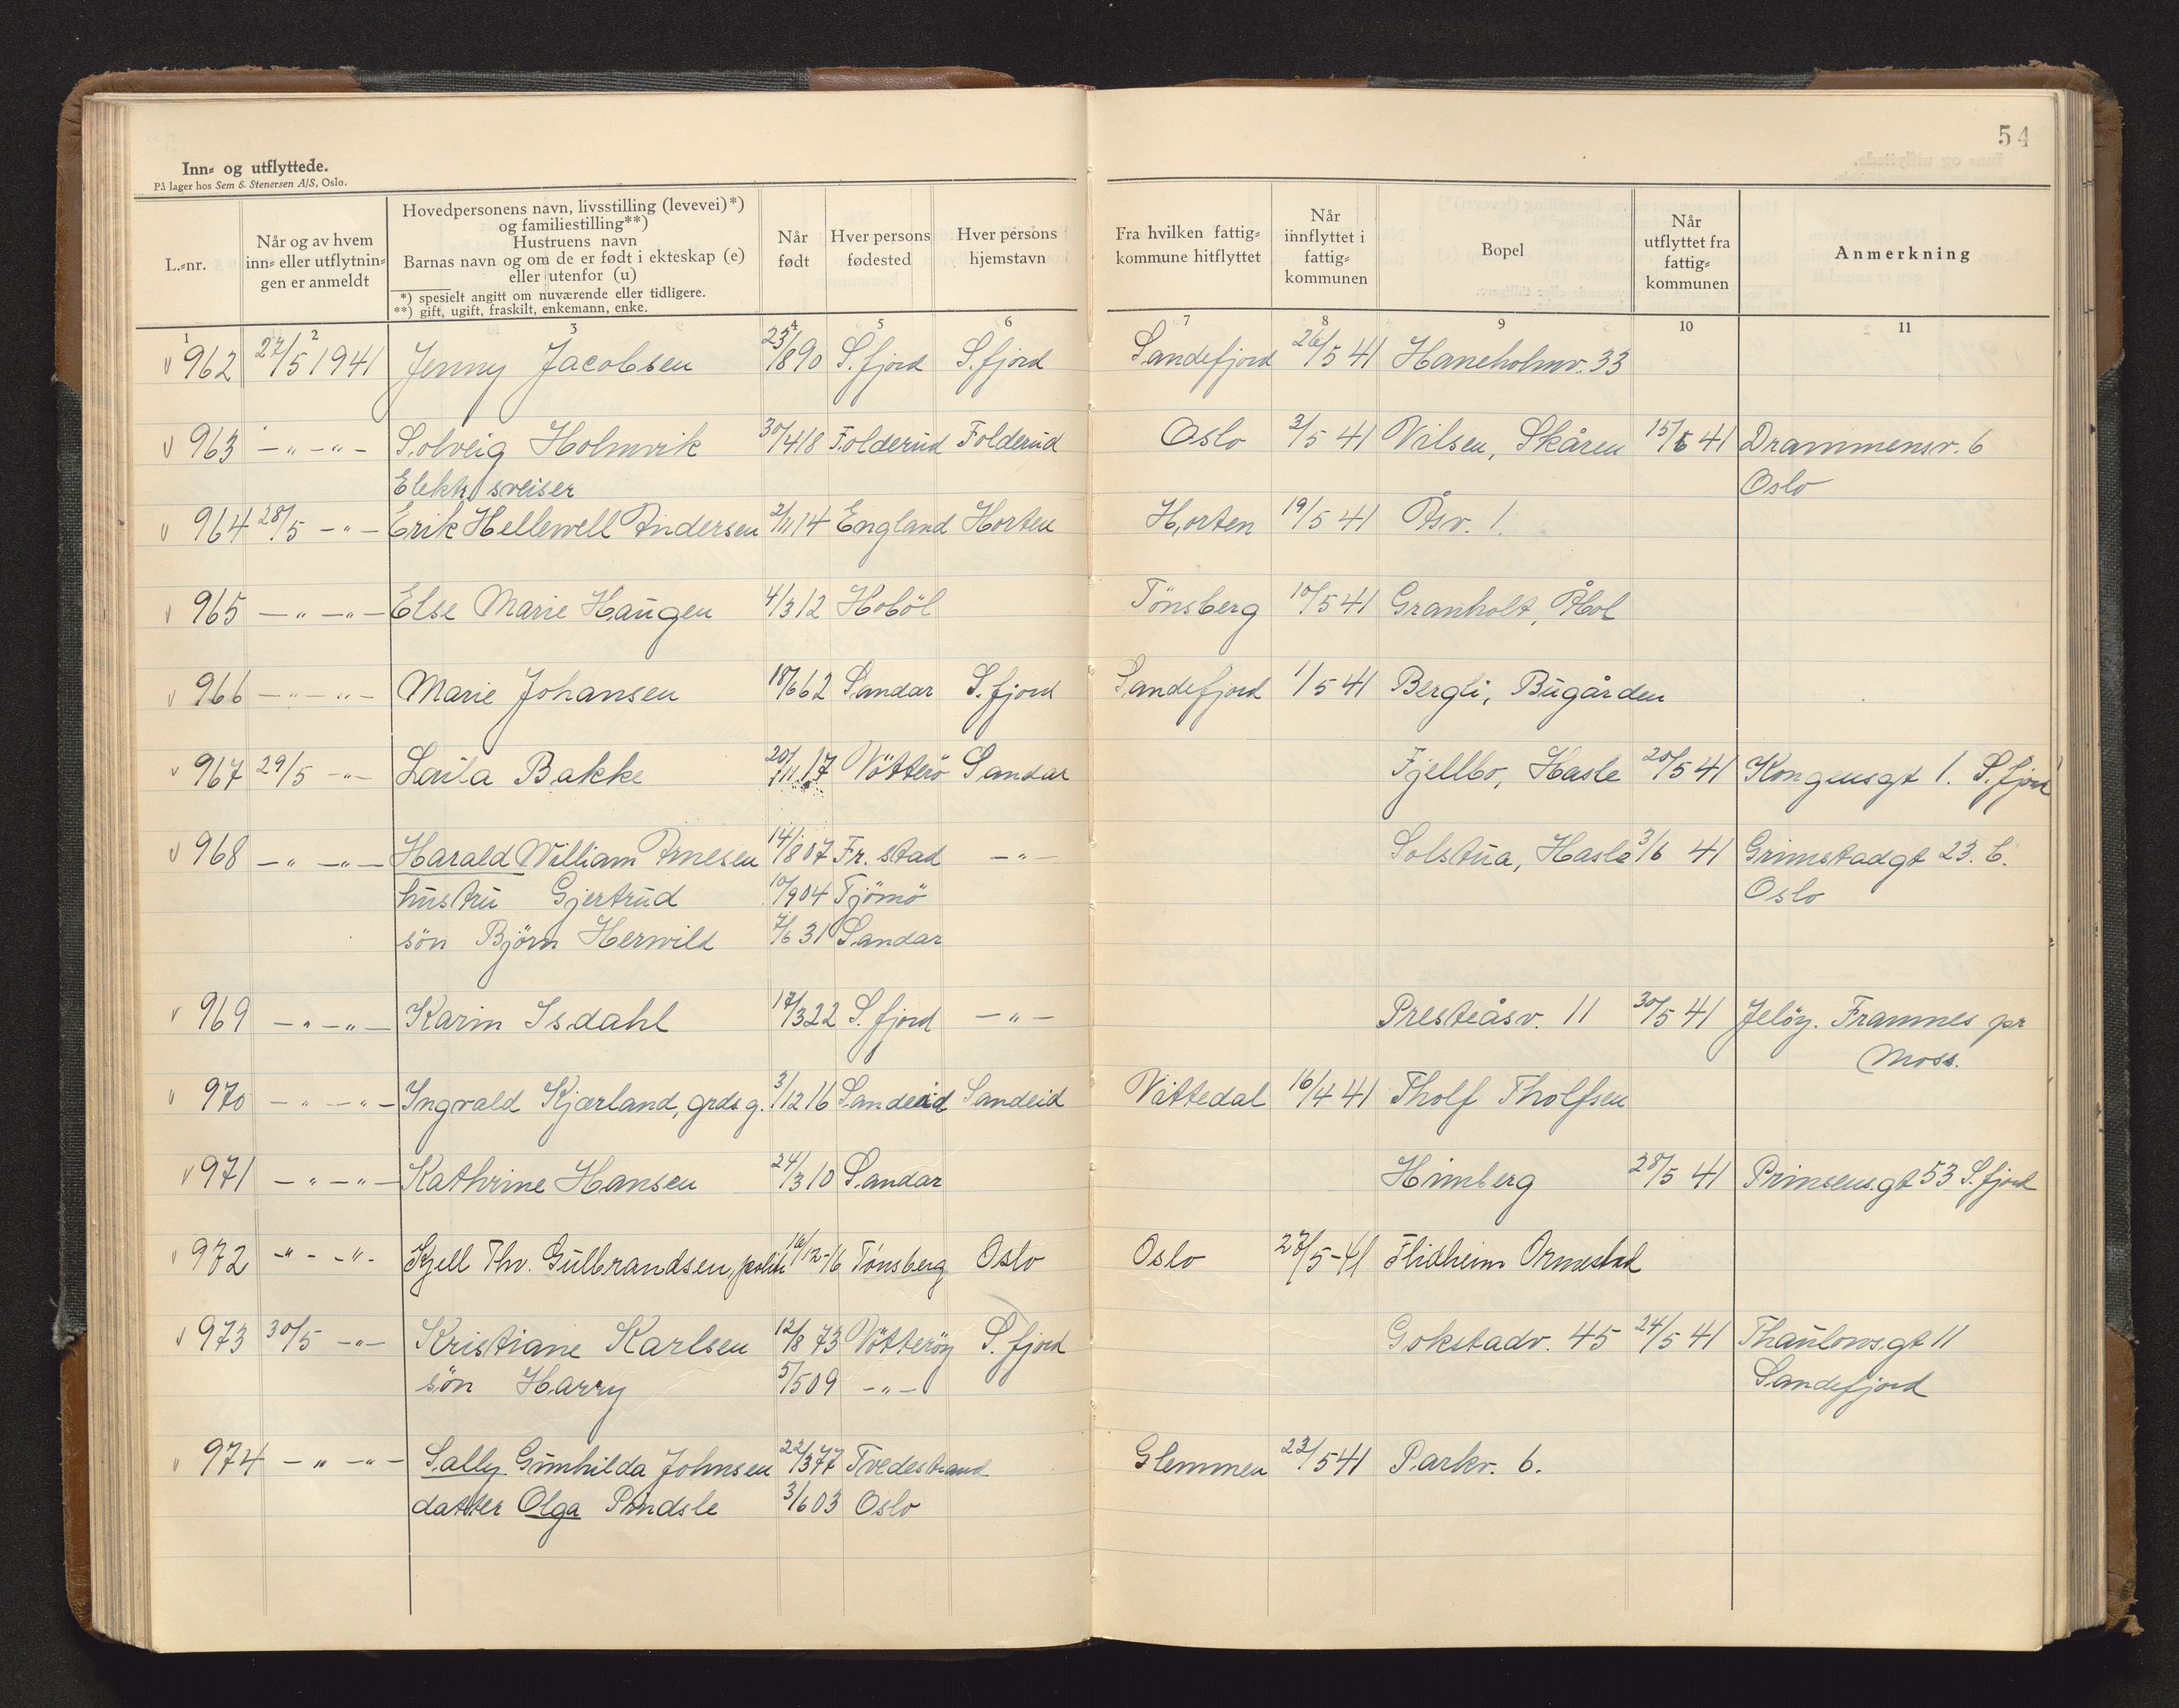 54
Inn- og utflyttede.
På lager hos Sem & Stenersen A/S, Oslo.
L.-nr.
Når og av hvem inn- eller utflytnin-gen er anmeldt
Hovedpersonens navn, livsstilling (levevei)*)
og familiestilling**)
Hustruens navn
Barnas navn og om de er født i ekteskap (e)
eller utenfor (u)
*) spesielt angitt om nuværende eller tidligere.
**) gift, ugift, fraskilt, enkemann, enke.
Når født
Hver persons fødested
Hver persons hjemstavn
Fra hvilken fattig-kommune hitflyttet
Når innflyttet i fattig-kommunen
Bopel
Når utflyttet fra fattig-kommunen
Anmerkning
1 2 3 4 5 6 7 8 9 10 11
v 962 27/5 1941 Jenny Jacobsen 23/1 890 S.fjord S.fjord Sandefjord 26/5 41 Haneholmv. 33
v 963 -"-"- Solveig Holmvik 30/4 18 Folderud Folderud Oslo 2/5 41 Nilsen, Skåren 15/5 41 Drammensv. 6
Elektr. sveiser Oslo
v 964 28/5 -"- Erik Hellewell Andersen 2/11 14 England Horten Horten 19/5 41 Åsv. 1.
v 965 -"-"- Else Marie Haugen 4/3 12 Hobøl Tønsberg 10/5 41 Granholt, Åbol
v 966 -"-"- Marie Johansen 18/6 62 Sandar S.fjord Sandefjord 1/5 41 Bergli, Bugården
v 967 29/5 -"- Laila Bakke 20/11 17 Nøtterø Sandar Fjellbo, Hasle 20/5 41 Kongensgt 1. S.fjord
v 968 -"-"- Harald William Arnesen 14/8 07 Fr.stad -"- Solstua, Hasle 3/6 41 Grimstadgt 23. b.
hustru Gjertrud 10/9 04 Tjømø Oslo
søn Bjørn Herwild 7/6 31 Sandar
v 969 -"-"- Karin Isdahl 17/3 22 S.fjord -"- Presteåsv. 11 30/5 41 Jeløy. Framnes pr
Moss.
v 970 -"-"- Ingvald Kjærland, grds g. 3/12 16 Sandeid Sandeid Vattedal 16/4 41 Tholf Tholfsen
v 971 -"-"- Kathrine Hansen 24/3 10 Sandar Himberg 28/5 41 Prinsensgt 53 S.fjord
v 972 -"-"- Kjell Thv. Gulbrandsen, politi 16/12-16 Tønsberg Oslo Oslo 27/5-41 Flidheim Ormestad
v 973 30/5 -"- Kristiane Karlsen 12/8 73 Nøtterøy S.fjord Gokstadv. 45 24/5 41 Thaulowsgt 11
søn Harry 5/5 09 -"- Sandefjord
v 974 -"-"- Sally Gunhilda Johnsen 22/3 77 Tvedestrand Glemmen 23/5 41 Parkv. 6.
datter Olga Pindsle 3/6 03 Oslo